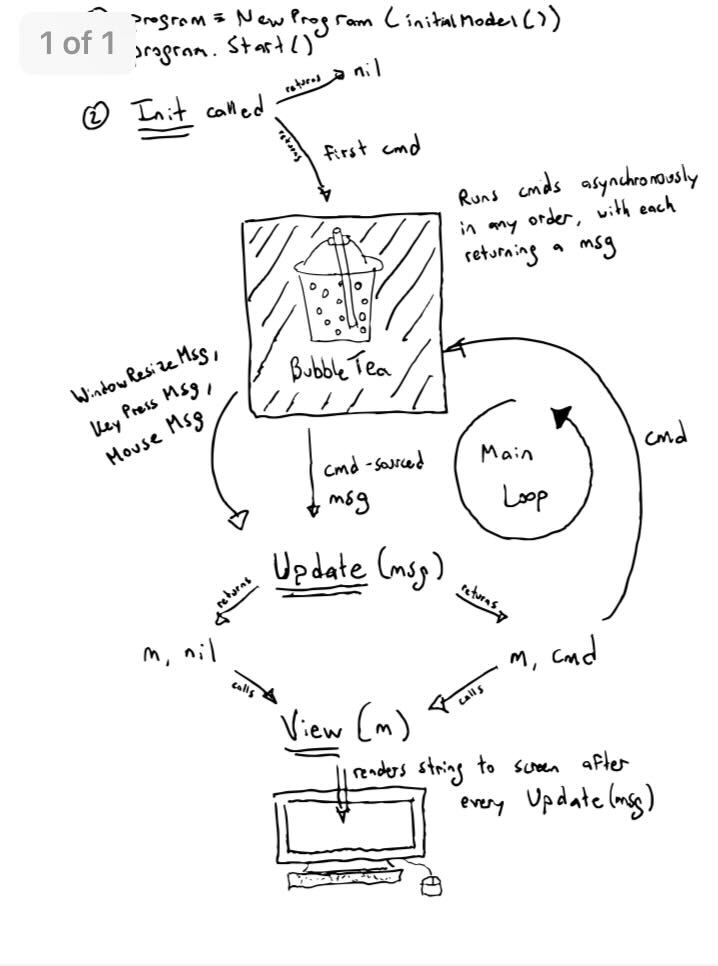 program = NewProgram (initialModel())
program. Start()
1 of 1
② Init called
returns
nil
returns
first cmd
Runs cmds asynchronously
in any order, with each
returning a msg
Bubble Tea
WindowResizeMsg,
Key Press Msg,
Mouse Msg
cmd-sourced
msg
Main
Loop
cmd
Update (msg)
returns
returns
m, nil
m, cmd
calls
calls
View (m)
renders string to screen after
every Update(msg)